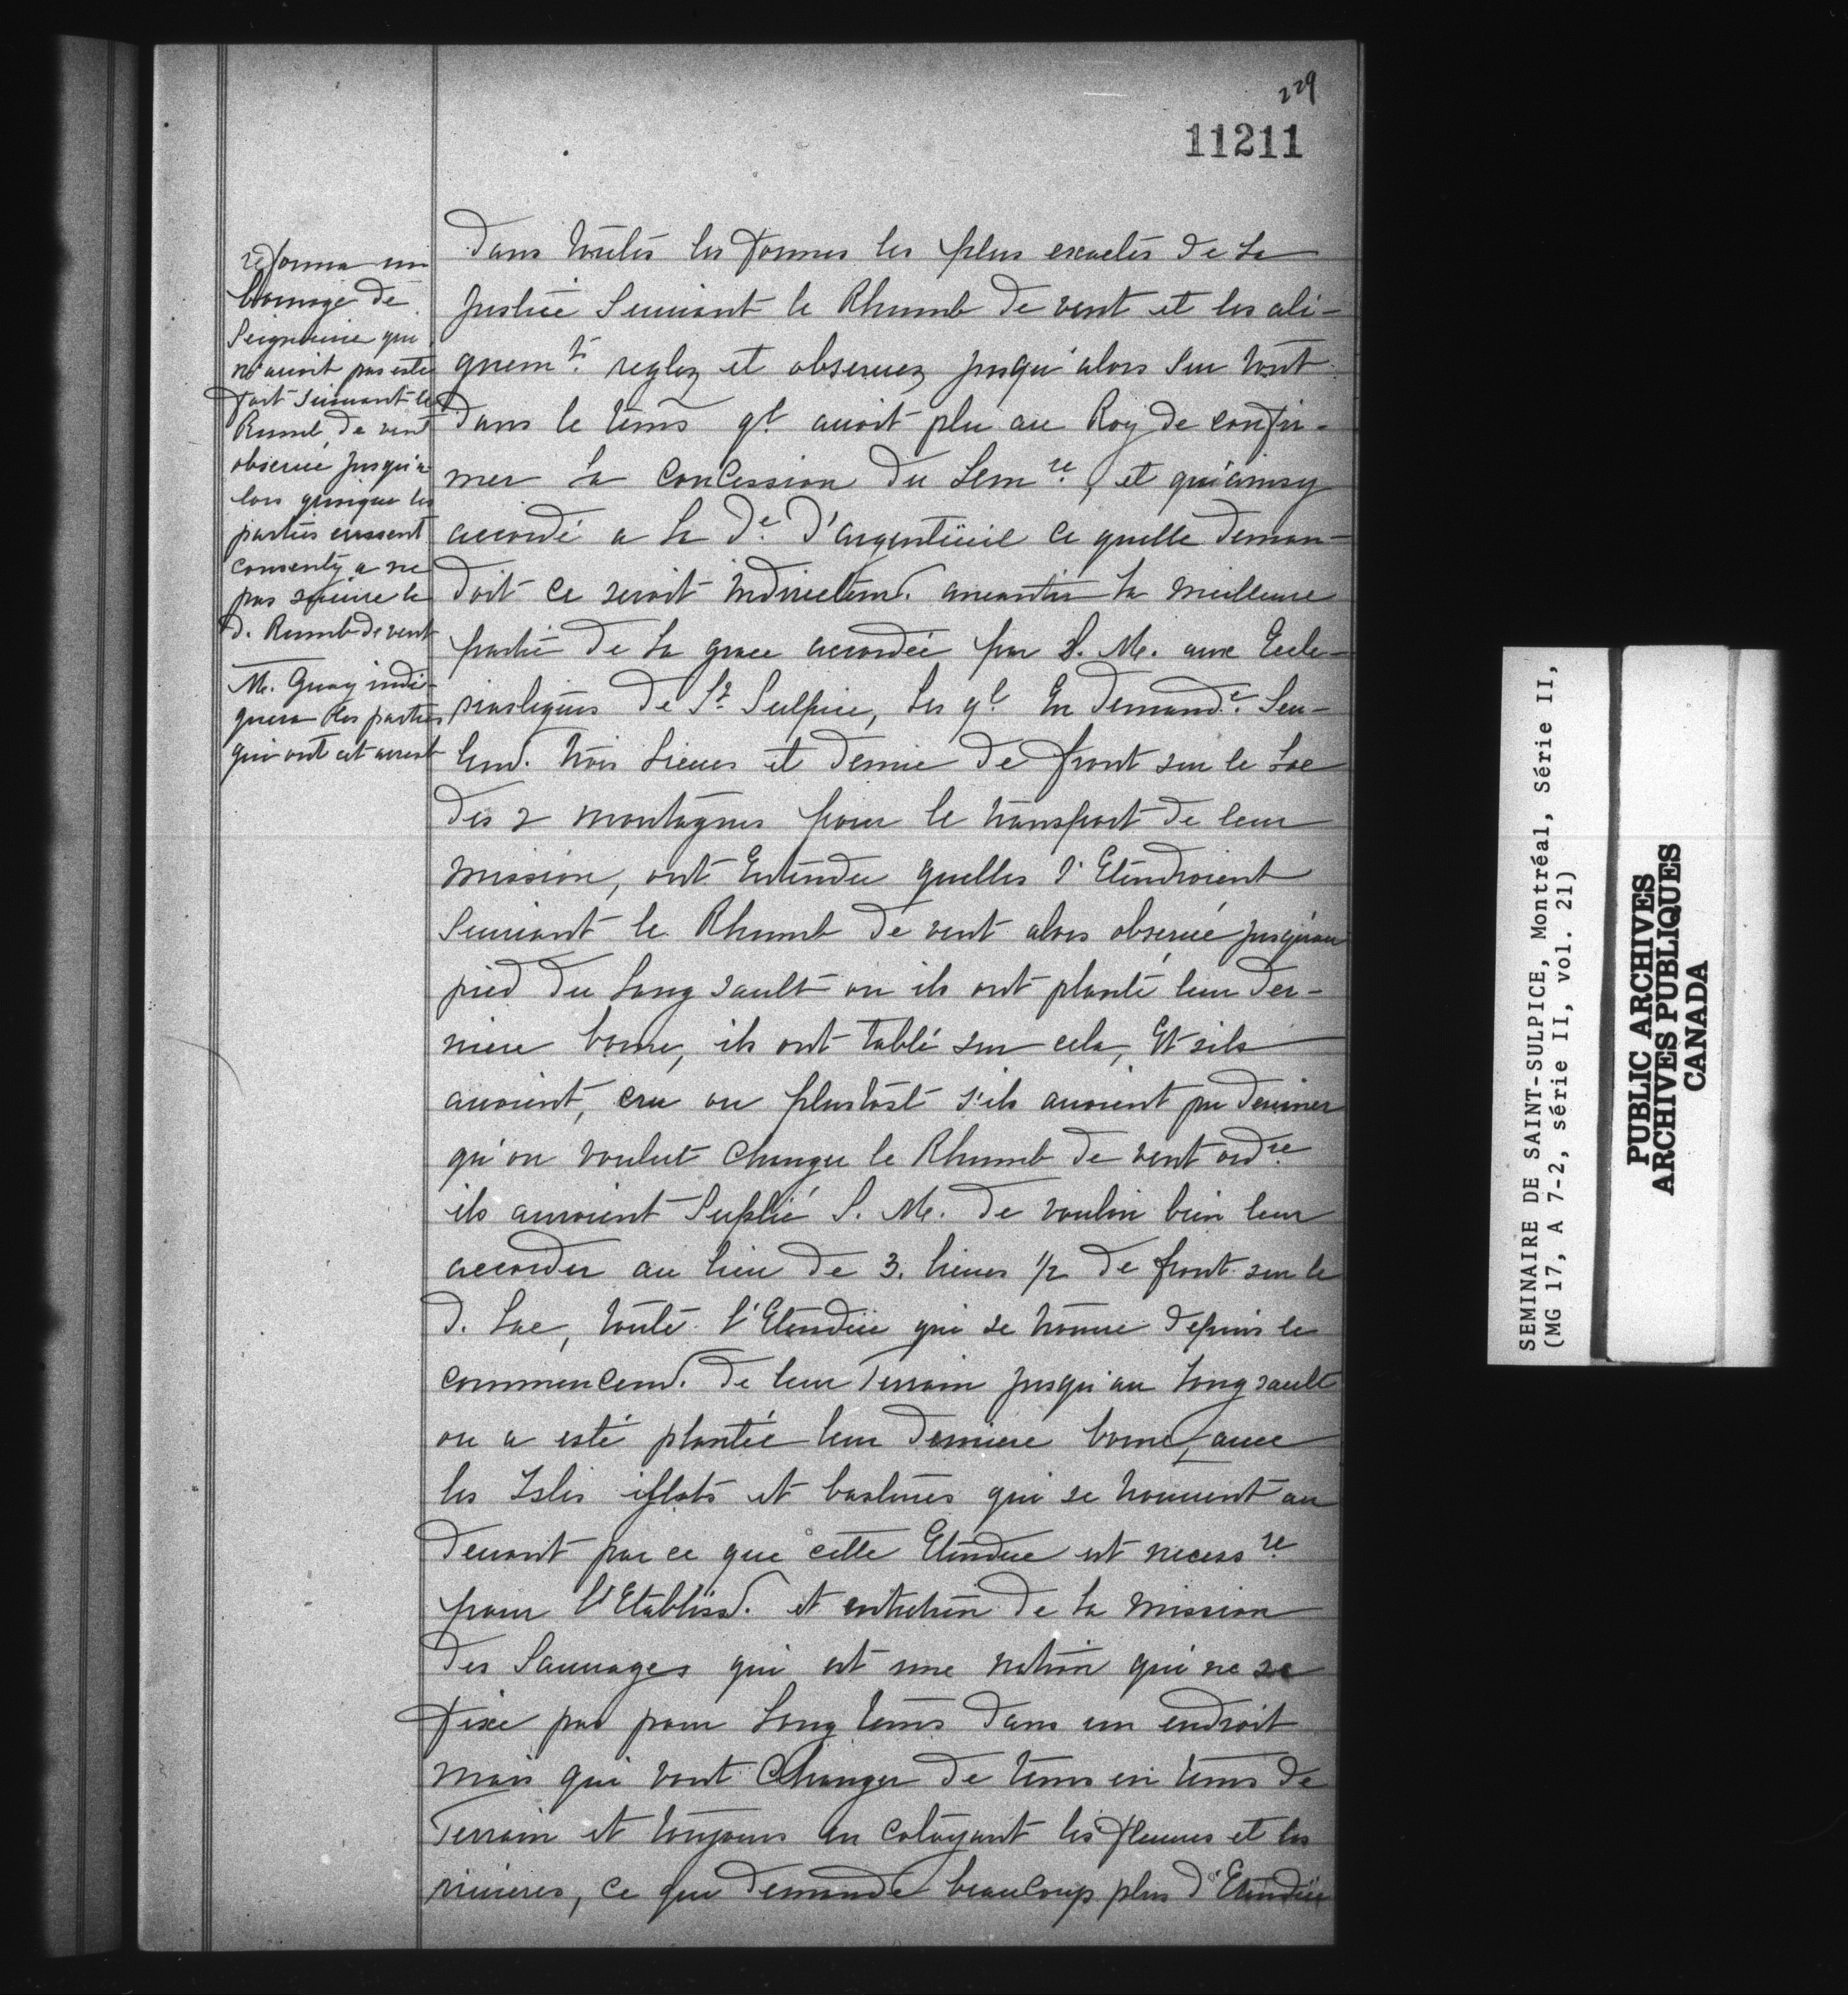 229
11211
reforma un
bornage de
Seigneurie qui
n'avoit pas esté
fait suivant le
Rumb de vent
observé jusqu'a
lors quoique les
parties eussent
consenty a ne
pas suivre le
d. Rumb de vent
M. Guay indi-
quera les parties
qui ont cet arrest
dans toutes les formes les plus exactes de la
justice Suivant le Rhumb de vent et les ali-
gnem.ts reglez et observez jusqu'alors Sur tout
dans le tems q.l avoit plu au Roy de confir-
mer la Concession du Sem.re, et qu'ainsy
accordé a la D.e D'argenteüil ce quelle deman-
doit ce seroit indirectem.t aneantir la meilleure
partie de la grace accordée par S. M. aux Eccle-
siastiques de St. Sulpice, Les q.l En demand.t Seu-
lem.t trois Lieues et demie de front sur le Lac
des 2 montagnes pour le transport de leur
mission, ont Entendu quelles s'Etendroient
Suivant le Rhumb de vent alors observé jusqu'au
pied du Long sault ou ils ont planté leur der-
niere borne, ils ont tablé sur cela, Et sils
avoient, cru ou plustost s'ils avoient pu deviner
qu'on voulut changer le Rhumb de vent ord.re
ils auroient Suplié S. M. de vouloir bien leur
accorder au lieu de 3. lieues 1/2 de front sur le
d. Lac, toute l'Etendüe qui se trouve depuis le
commencem.t de leur Terrain jusqu'au Long sault
ou a esté plantée leur derniere borne, avec
les Isles islots et bastures qui se trouvent au
devant par ce que cette Etendue est necess.re
pour l'Etabliss.t et entretien de la mission
des Sauvages qui est une nation qui ne se
fixe pas pour Long tems dans un endroit
mais qui vont Changer de tems en tems de
Terrain et toujours en cotoyant les fleuves et les
rivieres, ce qui demande beaucoup plus d'Etendüe
SEMINAIRE DE SAINT-SULPICE, Montréal, Série II,
(MG 17, A 7-2, série II, vol. 21)
PUBLIC ARCHIVES
ARCHIVES PUBLIQUES
CANADA